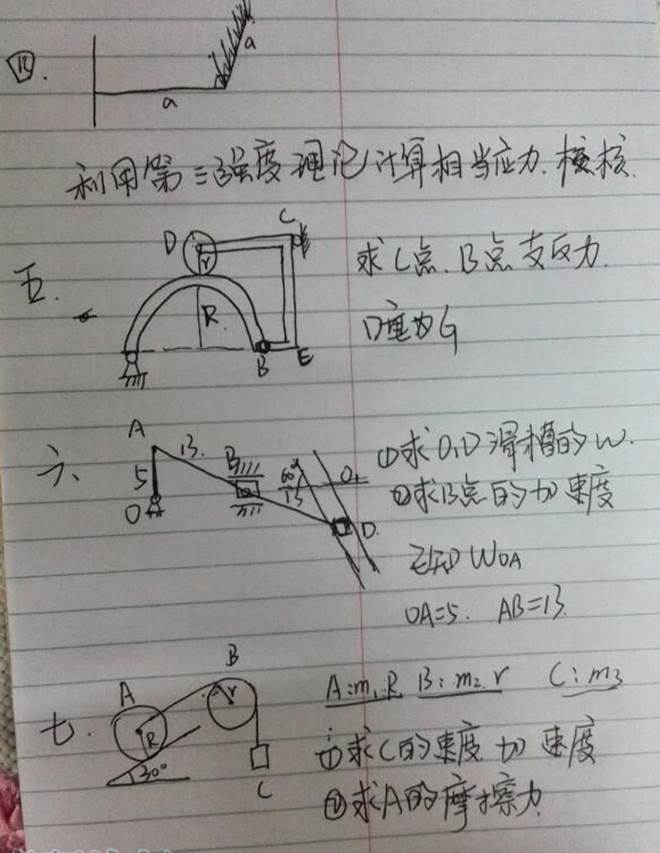 四.
a
a
利用第三强度理论计算相当应力.校核.
五.
D
C
r
R
B
E
求C点.B点支反力.
D重为G
六、
A
13.
B
5
O
60°
O₁
D.
①求O₁D滑槽的W.
②求B点的加速度
已知WOA
OA=5. AB=13.
七.
A
B
r
R
30°
C
A:m₁.R B:m₂.r C:m₃
①求C的速度.加速度
②求A的摩擦力.